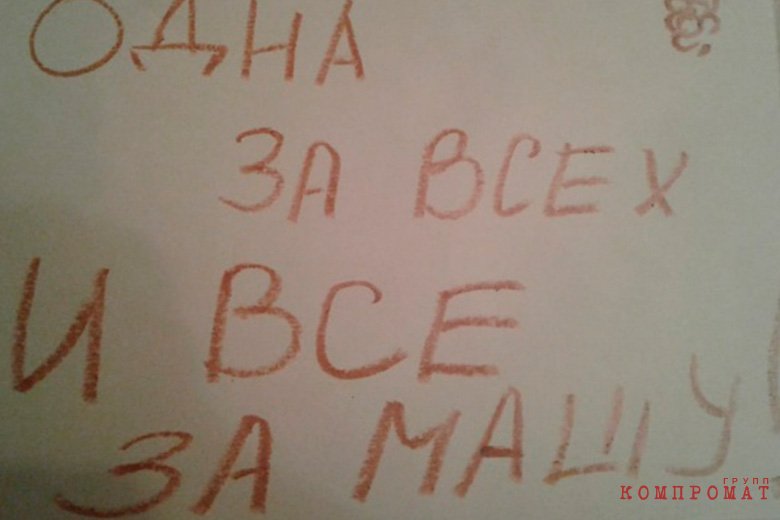 ОДНА
ЗА ВСЕХ
И ВСЕ
ЗА МАШУ!
ГРУПП
КОМПРОМАТ